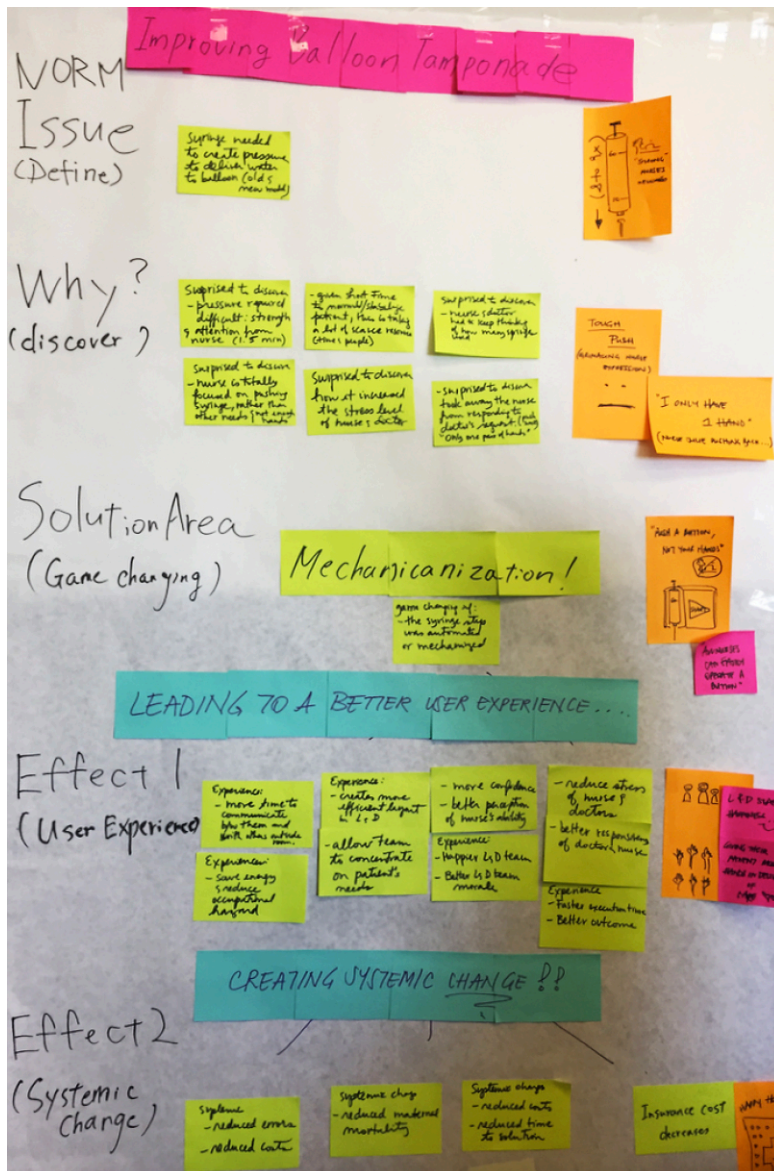 Improving Balloon Tamponade
NORM
Issue
(Define)
Syringe needed
to create pressure
to deliver water
to balloon (old &
new model)
Why?
(discover)
Surprised to discover
- pressure required
difficult: strength
& attention from
nurse (1.5 min)
- given short time
to normal/stabilize
patient, this is taking
a lot of scarce resource
(time & people)
Surprised to discover
- nurse & doctor
had to keep thinking
of how many syringe
used
Surprised to discover
- nurse is totally
focused on pushing
syringe, rather than
other needs (not enough
hands)
Surprised to discover
how it increased
the stress level
of nurse & doctor
- Surprised to discover
took away the nurse
from responding to
doctor's request
"Only one pair of hands"
TOUGH
PUSH
(GRIMACING NURSE
EXPRESSION)
"I ONLY HAVE
1 HAND"
Solution Area
(Game changing)
Mechanicanization!
game changing if:
- the syringe step
was automated
or mechanized
"PUSH A BUTTON,
NOT YOUR HANDS"
OPERATE A
BUTTON"
LEADING TO A BETTER USER EXPERIENCE....
Effect 1
(User Experience)
Experience:
- more time to
communicate
btw them and
with others outside
room
Experience:
- creates more
efficient layout
in L & D
- more confidence
- better perception
of nurse's ability
- reduce stress
of nurse &
doctors
- allow team
to concentrate
on patient's
needs
Experience:
- Happier L&D team
- Better L&D team
morale
- better responsiveness
of doctor & nurse
Experience:
- save energy
& reduce
occupational
hazard
Experience
- Faster execution time
- Better outcome
CREATING SYSTEMIC CHANGE!!
Effect 2
(Systemic
Change)
Systemic
- reduced errors
- reduced costs
Systemic chng
- reduced maternal
mortality
Systemic change
- reduced costs
- reduced time
to solution
Insurance cost
decreases